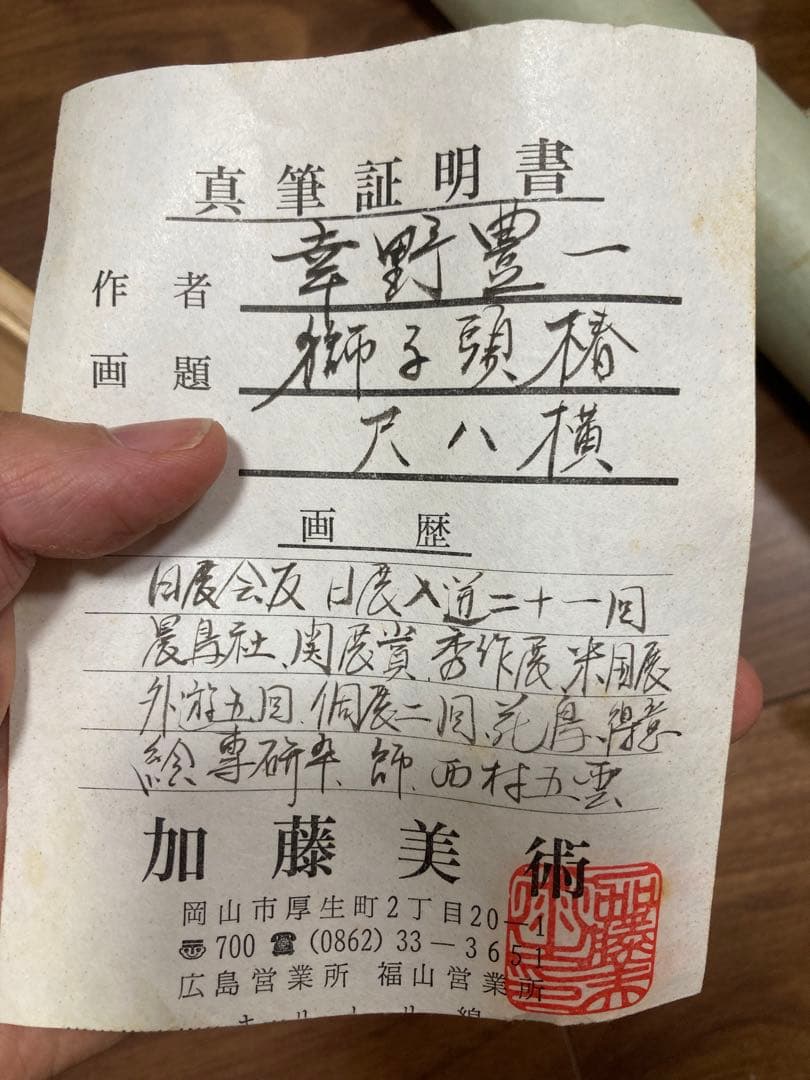 真筆証明書
作者 幸野豊一
画題 獅子頭椿
尺八横
画歴
日展会友 日展入選二十一回
晨鳥社、関展賞、秀作展、米国展
外遊五回、個展二回、花鳥、得意
絵専研卒、師、西村五雲
加藤美術
岡山市厚生町2丁目20-1
〠700 ☎(0862)33-3651
広島営業所 福山営業所
キリトリ線